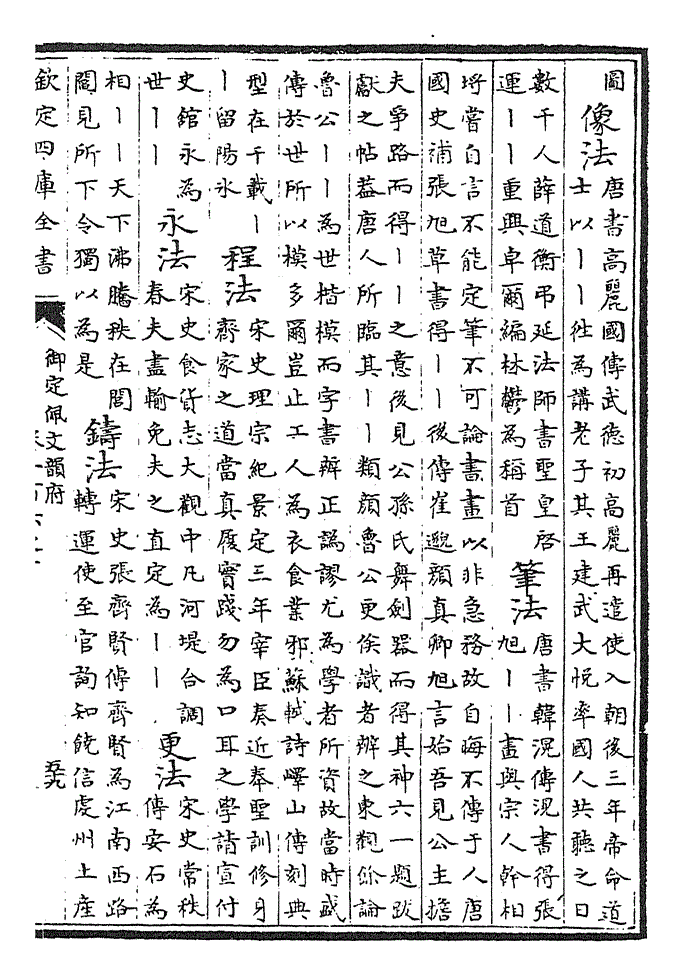 圖
像法
唐書高麗國傳武德初高麗再遣使入朝後三年帝命道
士以丨丨徃為講老子其王建武大悅率國人共聽之日
數千人薛道衡弔延法師書聖皇啓
運丨丨重興卓爾緇林鬱為稱首
筆法
唐書韓滉傳滉書得張
旭丨丨畫與宗人幹相
埒嘗自言不能定筆不可論書畫以非急務故自晦不傳于人唐
國史補張旭草書得丨丨後傳崔邈顔真卿旭言始吾見公主擔
夫爭路而得丨丨之意後見公孫氏舞劍器而得其神六一題跋
獻之帖葢唐人所臨其丨丨類顔魯公更俟識者辨之東觀餘論
魯公丨丨為世楷模而字書辨正譌謬尤為學者所資故當時盛
傳於世所以模多爾豈止工人為衣食業邪蘇軾詩嶧山傳刻典
型在千載丨
丨留陽氷
程法
宋史理宗紀景定三年宰臣奏近奉聖訓修身
齊家之道當真履實踐勿為口耳之學請宣付
史館永為
世丨丨
永法
宋史食貨志大觀中凡河堤合調
春夫盡輸免夫之直定為丨丨
更法
宋史常秩
傳安石為
相丨丨天下沸騰秩在閭
閻見所下令獨以為是
鑄法
宋史張齊賢傳齊賢為江南西路
轉運使至官詢知饒信虔州土産
欽定四庫全書
御定佩文韻府
五九